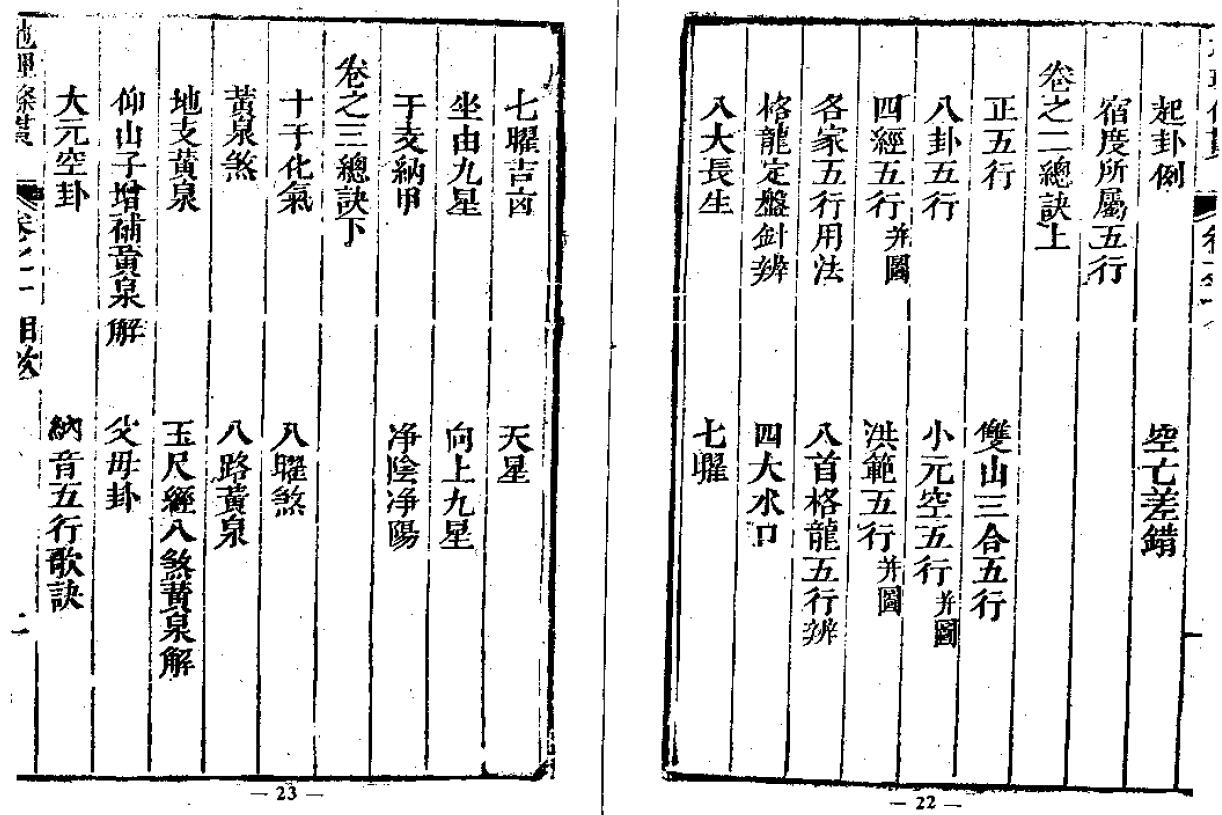 起卦例 空亡差錯
宿度所屬五行
卷之二總訣上
正五行 雙山三合五行
八卦五行 小元空五行并圖
四經五行并圖 洪範五行并圖
各家五行用法 八首格龍五行辨
格龍定盤針辨 四大水口
八大長生 七曜
— 22 —
七曜吉凶 天星
坐山九星 向上九星
干支納甲 净陰净陽
卷之三總訣下
十干化氣 八曜煞
黃泉煞 八路黃泉
地支黃泉 玉尺經八煞黃泉解
仰山子增補黃泉解 父母卦
大元空卦 納音五行歌訣
地理 卷之一 目次 二
— 23 —